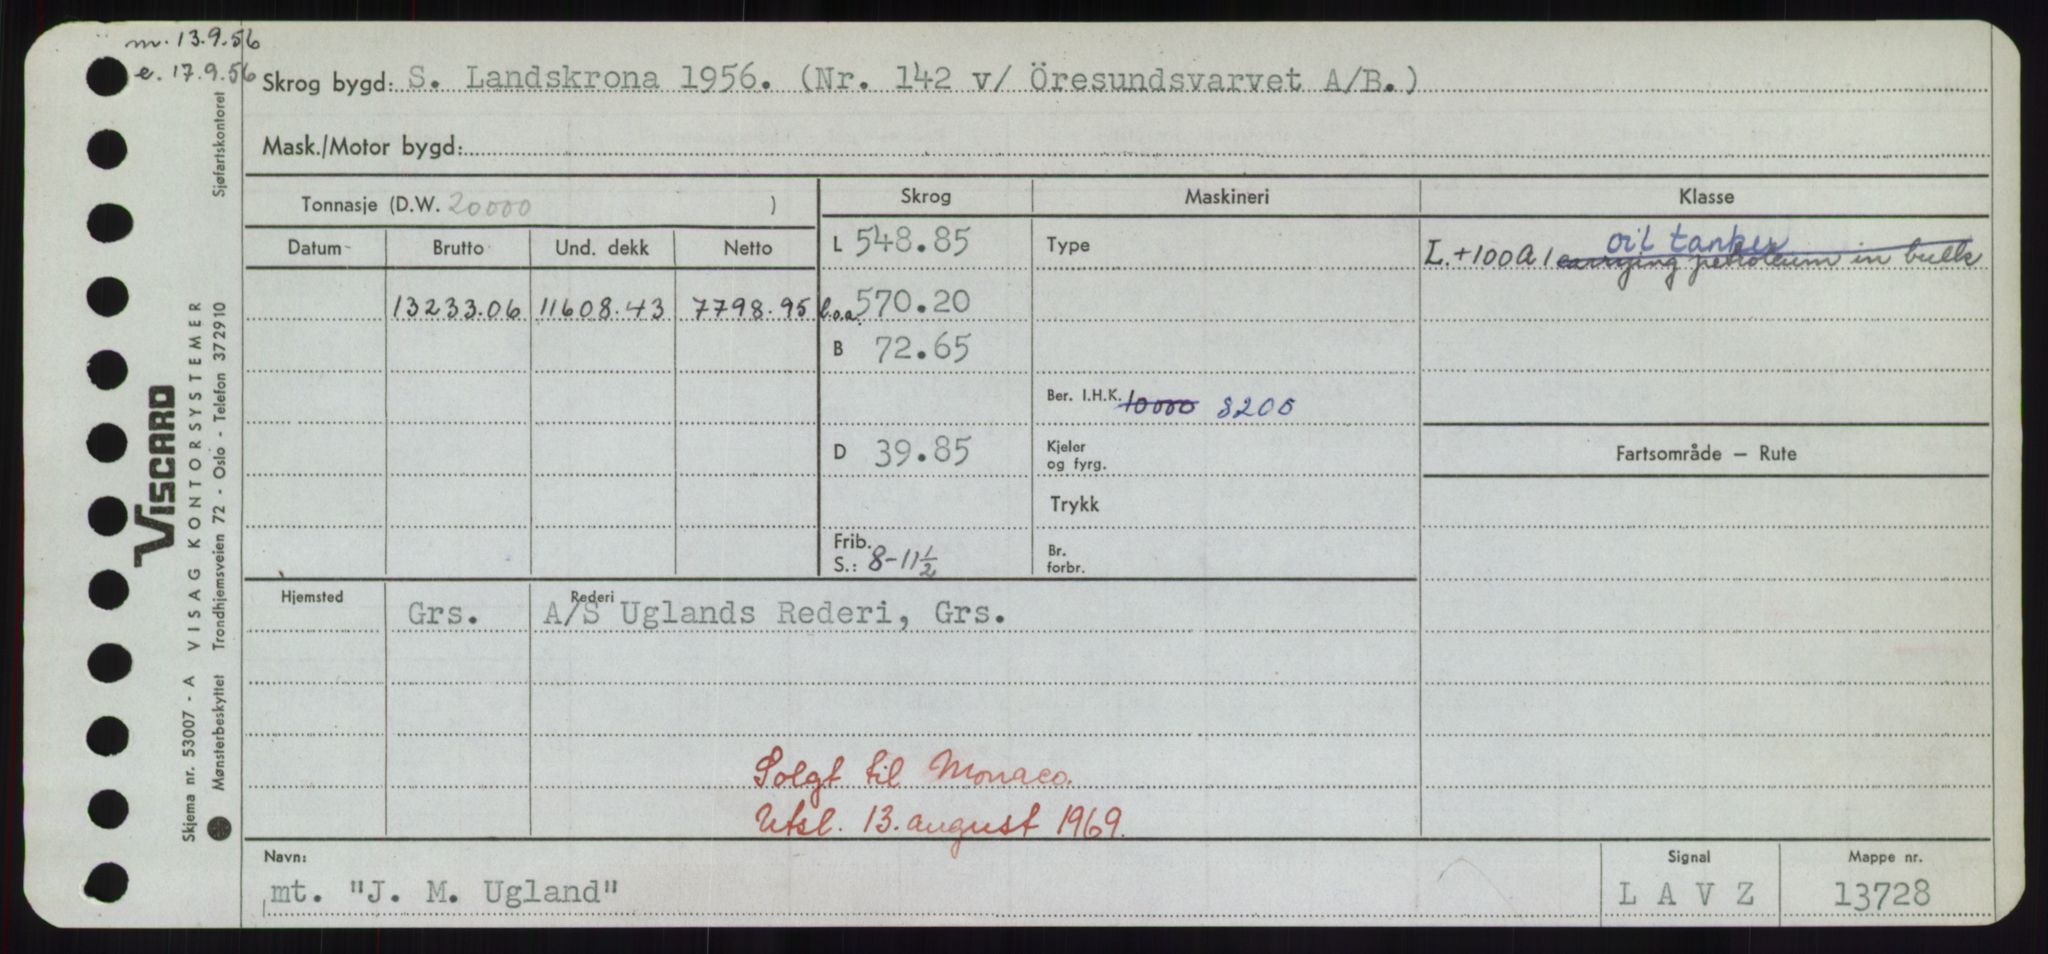 m. 13.9.56
e. 17.9.56
Skrog bygd: S. Landskrona 1956. (Nr. 142 v/ Öresundsvarvet A/B.)
Mask./Motor bygd:
Tonnasje (D.W. 20000 )
Skrog
Maskineri
Klasse
Datum
Brutto
Und. dekk
Netto
L 548.85
Type
oil tanker
L.+100A1 carrying petroleum in bulk
13233.06 11608.43 7798.95
l.o.a. 570.20
B 72.65
Ber. I.H.K. 10000 8200
D 39.85
Kjeler
og fyrg.
Fartsområde – Rute
Trykk
Frib.
S.: 8-11½
Br.
forbr.
Hjemsted
Rederi
Grs. A/S Uglands Rederi, Grs.
Solgt til Monaco.
Utsl. 13. august 1969.
Navn:
mt. "J. M. Ugland"
Signal
L A V Z
Mappe nr.
13728
VISCARD
Skjema nr. 53007 - A VISAG KONTORSYSTEMER
Mønsterbeskyttet Trondhjemsveien 72 - Oslo - Telefon 372910 Sjøfartskontoret